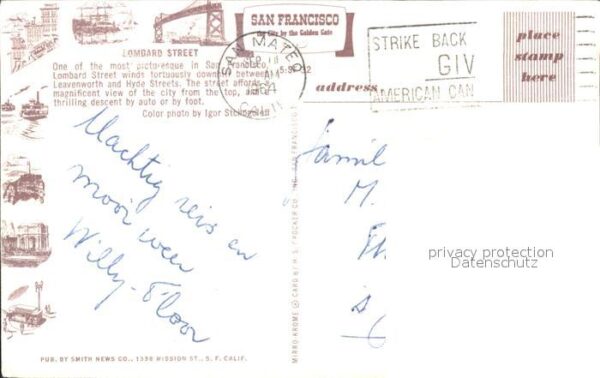 SAN FRANCISCO
the City by the Golden Gate
LOMBARD STREET
One of the most picturesque in San Francisco
Lombard Street winds tortuously down between
Leavenworth and Hyde Streets. The street affords a
magnificent view of the city from the top, and a
thrilling descent by auto or by foot.
Color photo by Igor
SAN MATEO
AM
CALIF
STRIKE BACK
GIV
AMERICAN CAN
place
stamp
here
address
Machtig reis en
mooi weer
Willy-Floor
Famil
M.
privacy protection
Datenschutz
MIRRO-KROME ® CARD BY H. S. CROCKER CO., INC. SAN FRANCISCO
PUB. BY SMITH NEWS CO., 1338 MISSION ST., S. F. CALIF.